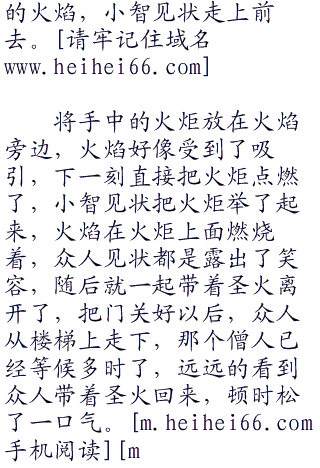 的火焰，小智见状走上前
去。[请牢记住域名
www.heihei66.com]
将手中的火炬放在火焰
旁边，火焰好像受到了吸
引，下一刻直接把火炬点燃
了，小智见状把火炬举了起
来，火焰在火炬上面燃烧
着，众人见状都是露出了笑
容，随后就一起带着圣火离
开了，把门关好以后，众人
从楼梯上走下，那个僧人已
经等候多时了，远远的看到
众人带着圣火回来，顿时松
了一口气。[m.heihei66.com
手机阅读][m